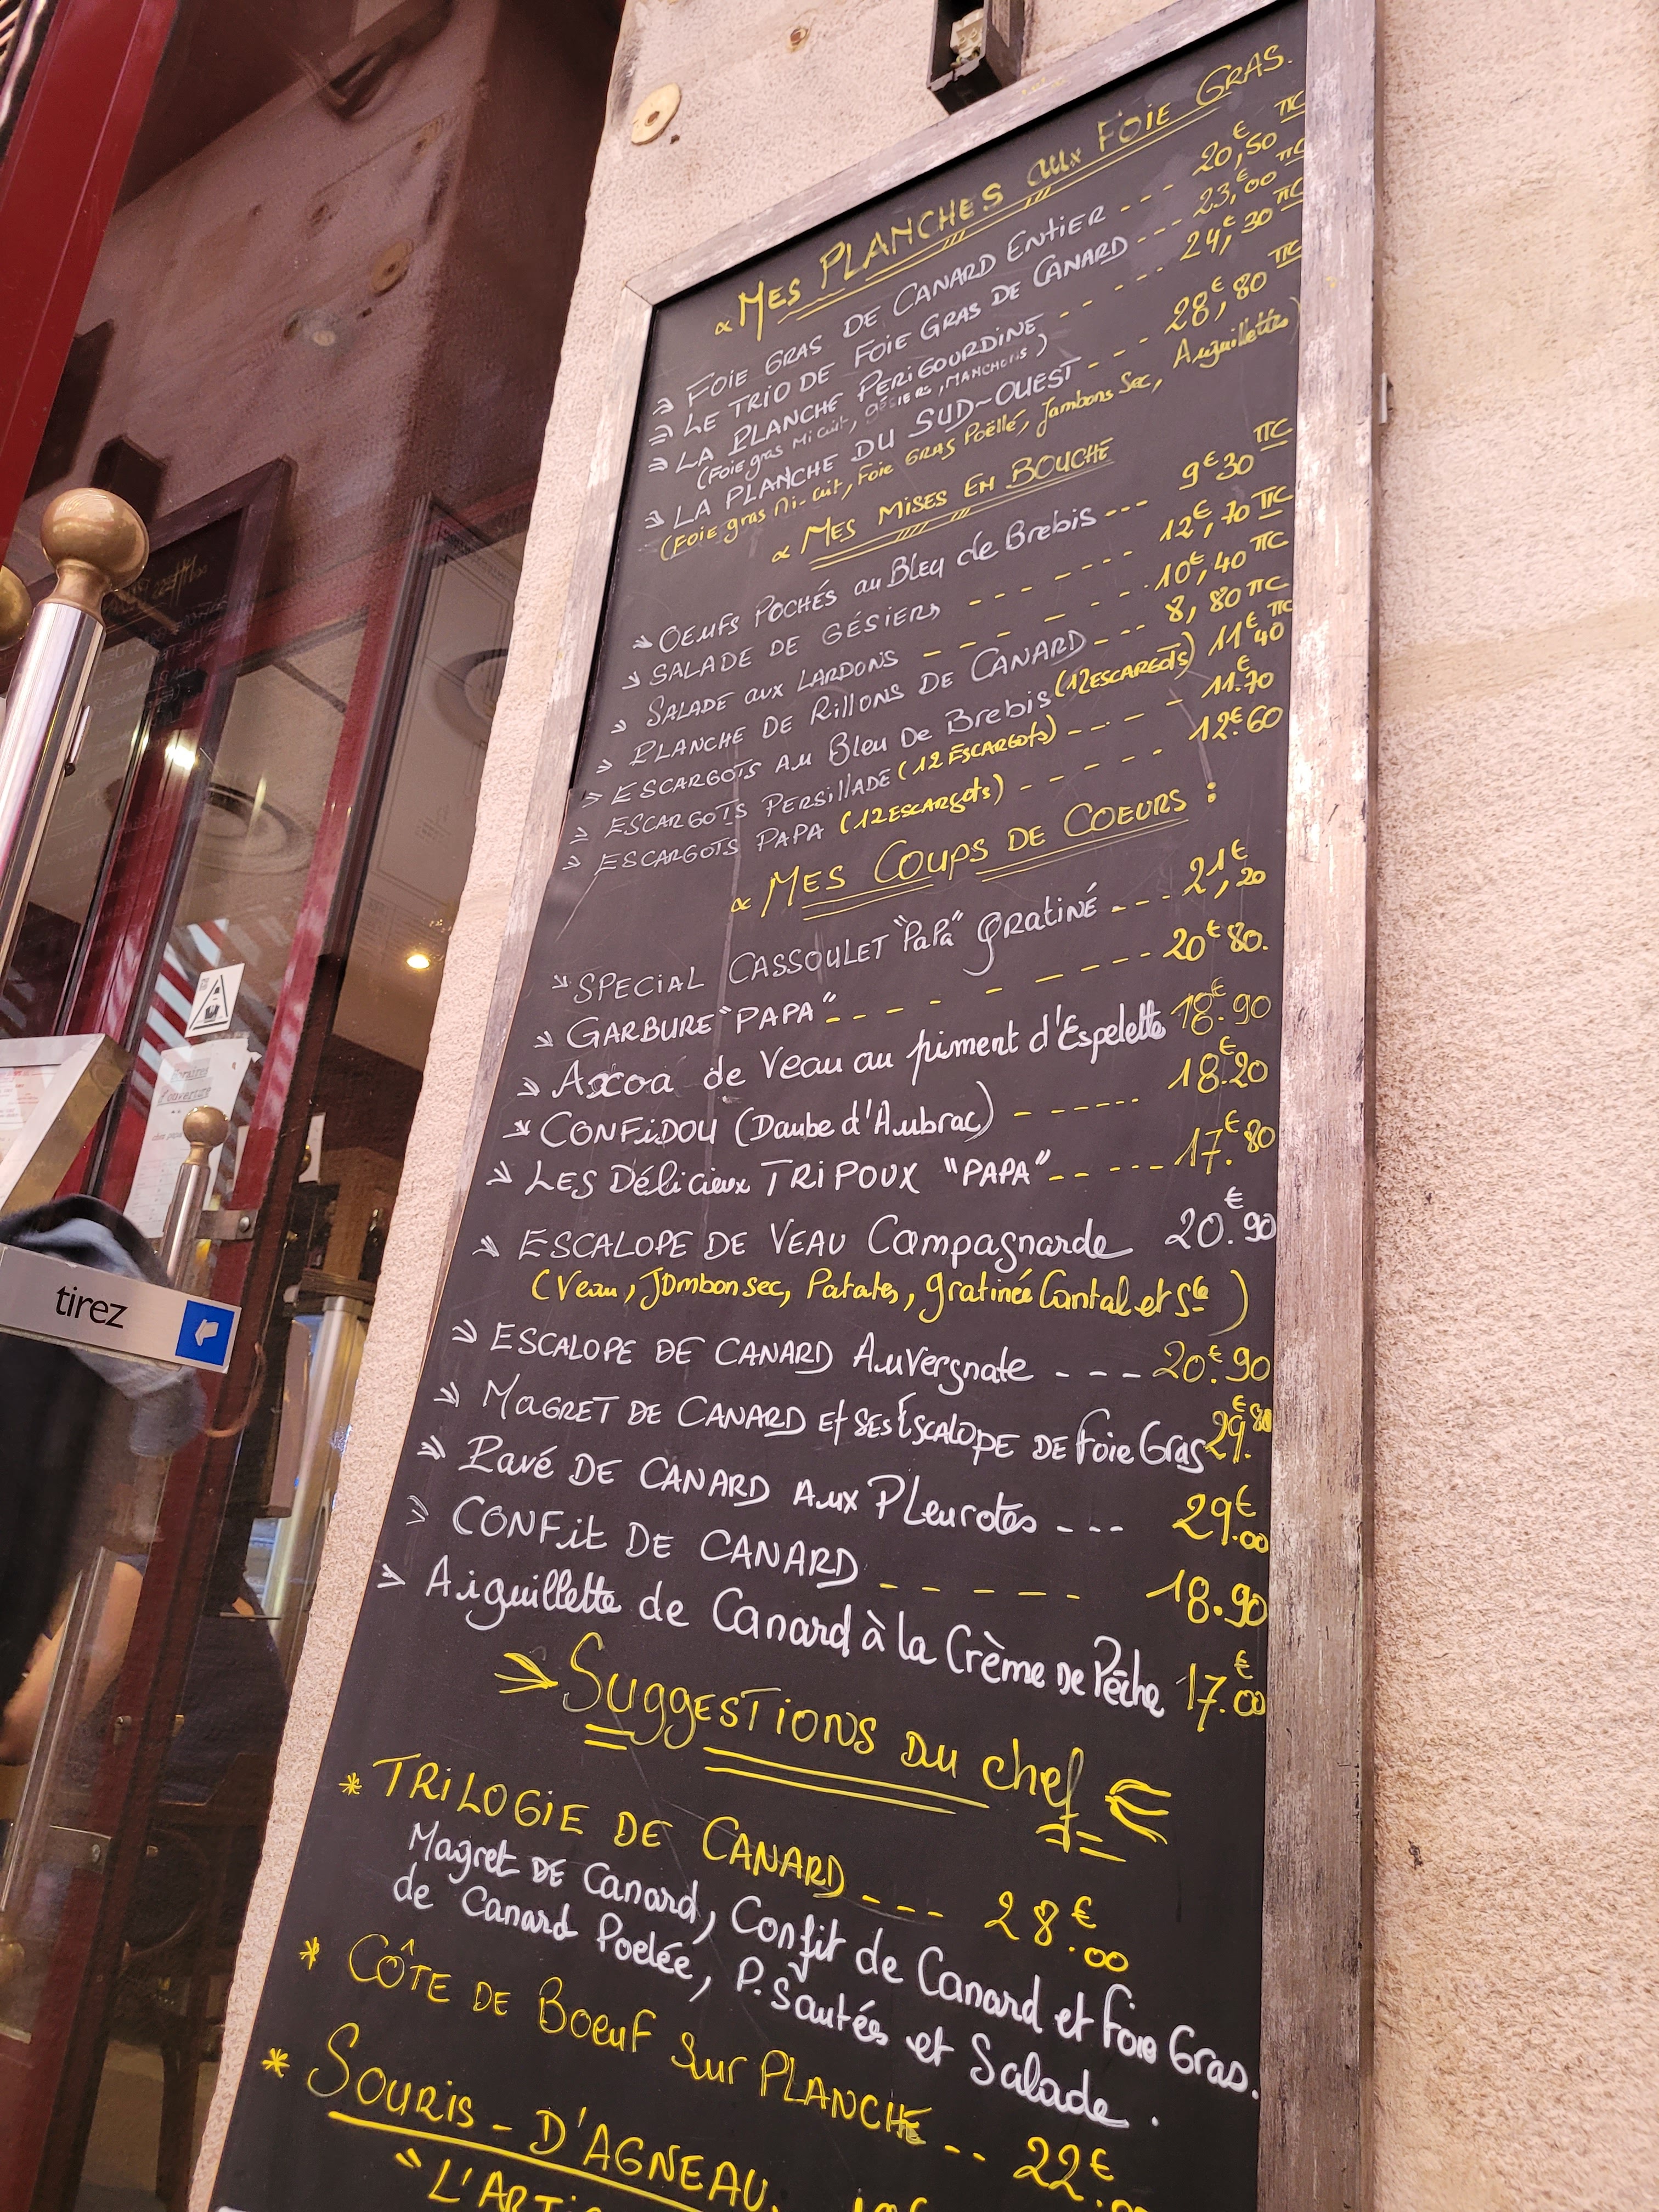 Mes PLANCHES aux FOIE GRAS.
FOIE GRAS DE CANARD ENTIER - - - 20,€50 TTC
LE TRIO DE FOIE GRAS DE CANARD - - - 23,€00 TTC
LA PLANCHE PERIGOURDINE - - - - 24,€30 TTC
(Foie gras Mi cuit, GÉSIERS, MANCHONS)
LA PLANCHE DU SUD-OUEST - - - 28,€80 TTC
(Foie gras Mi-cuit, Foie GRAS Poëllé, Jambons Sec, Aiguillettes)
MES MISES EN BOUCHE
OEUFS POCHÉS au Bleu de Brebis - - - 9€30 TTC
SALADE DE GÉSIERS - - - - - - 12€,70 TTC
SALADE aux LARDONS - - - - - - 10€,40 TTC
PLANCHE DE RILLONS DE CANARD - - - 8,80 TTC
ESCARGOTS AU Bleu De Brebis (12 ESCARGOTS) 11€40 TTC
ESCARGOTS PERSILLADE (12 ESCARGOTS) - - - - 11.€70
ESCARGOTS PAPA (12 ESCARGOTS) - - - - - 12€.60
MES COUPS DE COEURS :
SPECIAL CASSOULET "PaPa" gratiné - - - 21,€20
GARBURE "PAPA" - - - - - - - - - 20€80.
Axoa de Veau au piment d'Espelette 18€.90
CONFIDOU (Daube d'Aubrac) - - - - - - 18.€20
LES Délicieux TRIPOUX "PAPA" - - - - - 17.€80
ESCALOPE DE VEAU Campagnarde 20.€90
(Veau, Jambon sec, Patates, gratinée Cantal et Sce)
ESCALOPE DE CANARD Auvergnate - - - 20€.90
MAGRET DE CANARD Et SES ESCALOPE DE Foie Gras 29.€80
Pavé DE CANARD AUX PLeurotes - - - 29€.00
CONFIT DE CANARD - - - - - 18.90
Aiguillette de Canard à la Crème DE Pêche 17.€00
SuggESTIONS DU chef
* TRILOGIE DE CANARD - - - 28€.00
Magret DE Canard, Confit de Canard et Foie Gras.
de Canard Poelée, P. Sautés et Salade.
* CÔTE DE BOEUF Sur PLANCHE - - 22€.00
* SOURIS - D'AGNEAU.
tirez